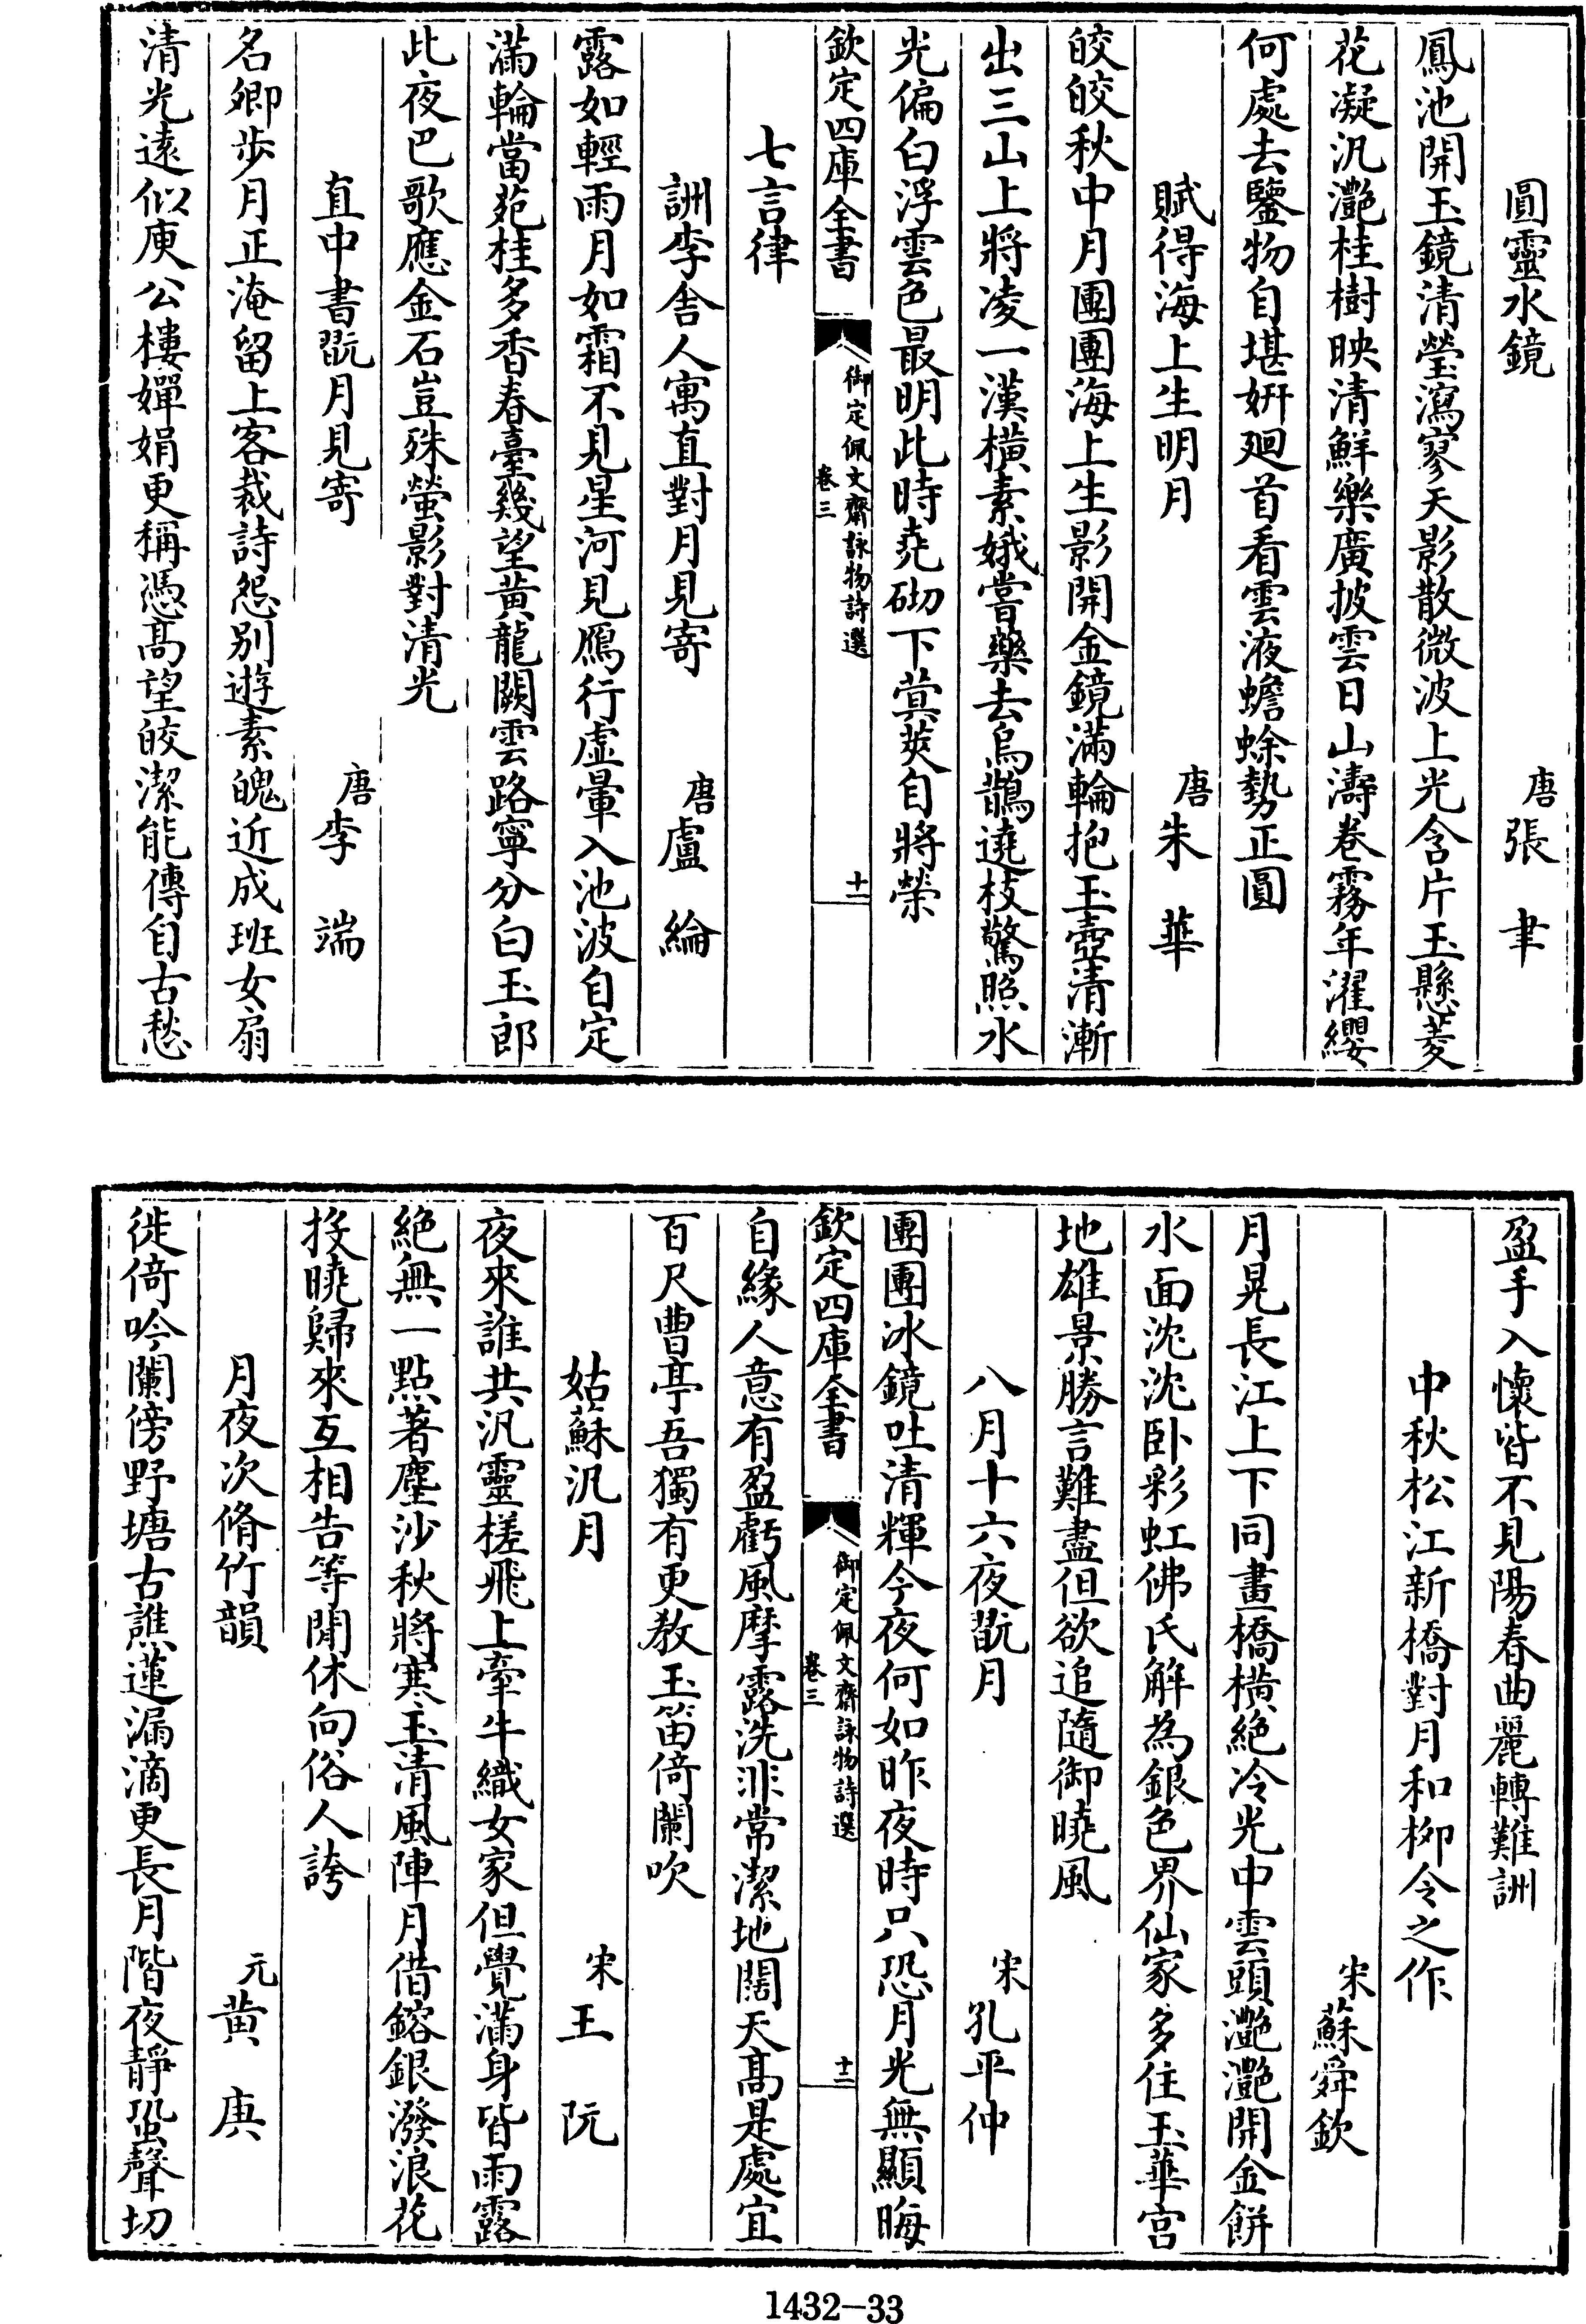 圓靈水鏡
唐張聿
鳳池開玉鏡清瑩瀉寥天影散微波上光含片玉懸菱
花凝汎灔桂樹映清鮮樂廣披雲日山濤卷霧年濯纓
何處去鑒物自堪姸廻首看雲液蟾蜍勢正圓
賦得海上生明月
唐朱華
皎皎秋中月團團海上生影開金鏡滿輪抱玉壺清漸
出三山上將凌一漢橫素娥嘗藥去烏鵲遶枝驚照水
光偏白浮雲色最明此時堯砌下蓂莢自將榮
欽定四庫全書
御定佩文齋詠物詩選
卷三
十一
七言律
詶李舍人寓直對月見寄
唐盧綸
露如輕雨月如霜不見星河見鴈行虛暈入池波自定
滿輪當苑桂多香春臺幾望黃龍闕雲路寧分白玉郎
此夜巴歌應金石豈殊螢影對清光
直中書翫月見寄
唐李端
名卿步月正淹留上客裁詩怨别遊素魄近成班女扇
清光遠似庾公樓嬋娟更稱憑高望皎潔能傳自古愁
盈手入懷皆不見陽春曲麗轉難詶
中秋松江新橋對月和栁令之作
宋蘇舜欽
月晃長江上下同畫橋橫絶冷光中雲頭灔灔開金餅
水面沈沈卧彩虹佛氏解為銀色界仙家多住玉華宫
地雄景勝言難盡但欲追隨御曉風
八月十六夜翫月
宋孔平仲
團團冰鏡吐清輝今夜何如昨夜時只恐月光無顯晦
欽定四庫全書
御定佩文齋詠物詩選
卷三
十二
自緣人意有盈虧風摩露洗非常潔地闊天高是處宜
百尺曹亭吾獨有更教玉笛倚闌吹
姑蘇汎月
宋王阮
夜來誰共汎靈槎飛上牽牛織女家但覺滿身皆雨露
絶無一點著塵沙秋將寒玉清風陣月借鎔銀潑浪花
投曉歸來互相告等閒休向俗人誇
月夜次脩竹韻
元黄庚
徙倚吟闌傍野塘古譙蓮漏滴更長月階夜靜蛩聲切
1432-33